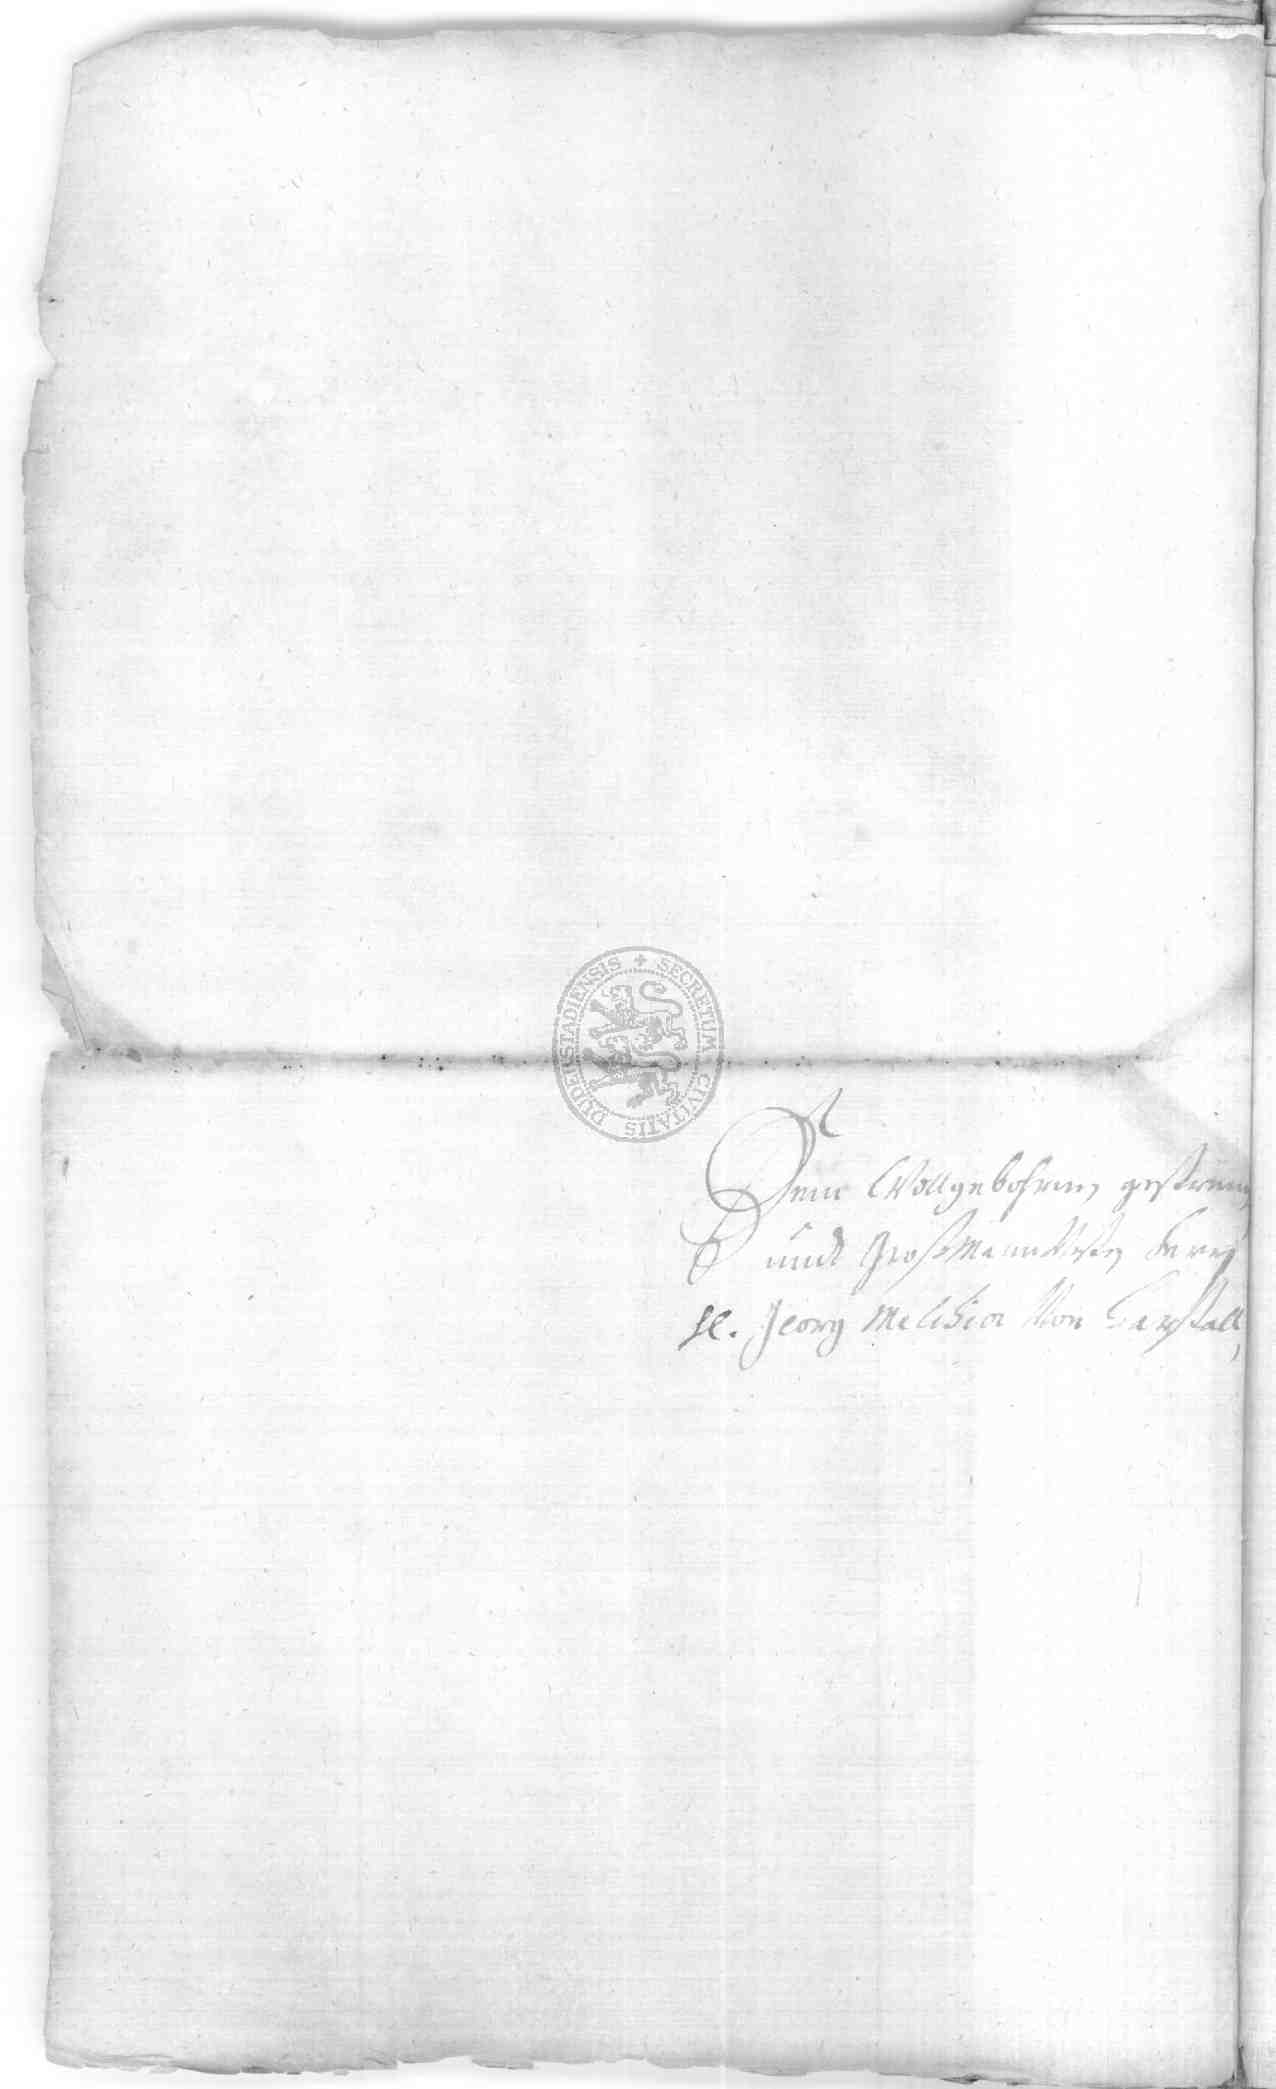 SECRETUM CIVITATIS DUDERSTADIENSIS
Dem Wollgebohrnen gestreng
undt Großmannvesten herrn
H. Georg Melchior Von harstall,